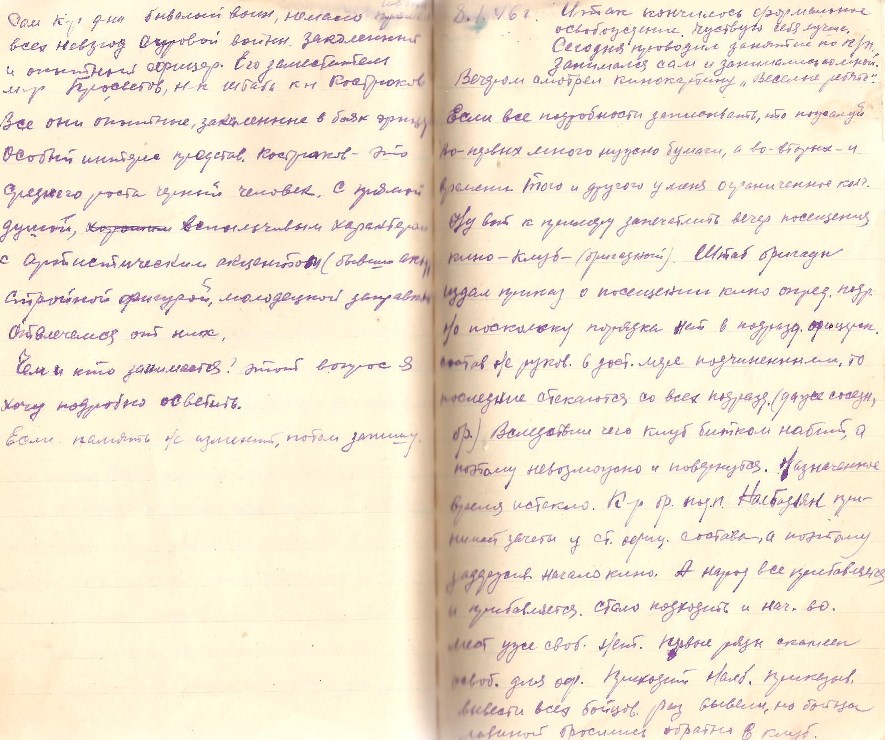 Сам к-р дни бывалый воин, немало
всех невзгод суровой войны. Закаленный
и опытный офицер. Его заместитель
м-р Просветов, н-к штаба к-н Костриков
Все они опытные, закаленные в боях офицеры
Особый интерес представ. Костриков - это
среднего роста черный человек, с прямой
душой, вспыльчивым характером
с артистическим акцентом (бывший
стройной фигурой, молодецкой заправкой
Отвлечемся от них.
Чем и кто занимается? Этот вопрос я
хочу подробно осветить.
Если память не изменит, потом запишу.
8.I.46 г. Итак кончилось формальное
освобождение. Чуствую себя лучше.
Сегодня проводил занятие по
Занимался сам и занимались со мной.
Вечером смотрел кинокартину „Веселые ребята“.
Если все подробности записывать, то пожалуй
во-первых много нужно бумаги, а во-вторых - и
времени. Того и другого у меня ограниченное кол.
Ну вот к примеру запечатлить вечер посещения
кино - клуб - (бригадный). Штаб бригады
издал приказ о посещении кино опред. подр.
Но поскольку порядка нет в подразд. офицерск.
состав не руков. в дост. мере подчиненными, то
последние стекаются со всех подразд. (даже соседн.
бр.) Вследствии чего клуб битком набит, а
поэтому невозможно и повернутся. Назначенное
время истекло. К-р бр. подп. Налбадьян при-
нимает зачеты у ст. офиц. состава, а поэтому
задержив. начало кино. А народ все прибавляется
и прибавляется. Стало подходить и нач. во.
мест уже своб. нет. Первые ряды скамеек
освоб. для оф. Приходит Налб. приказыв.
вывести всех бойцов. Раз вывели, но бойцы
лавиной бросились обратно в клуб.